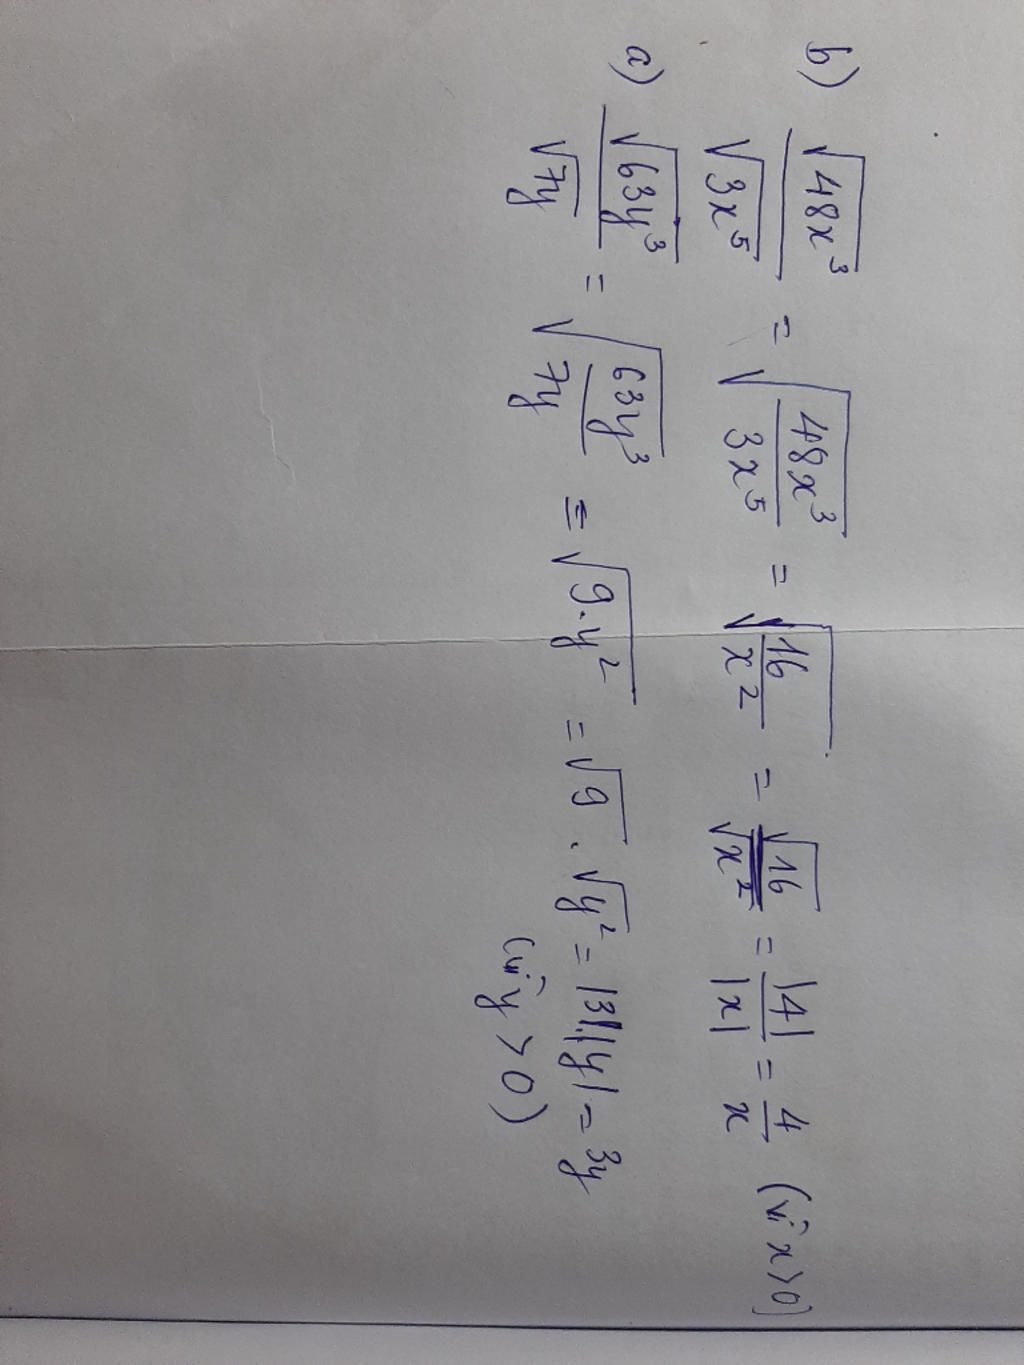 b) \frac{\sqrt{48x^3}}{\sqrt{3x^5}} = \sqrt{\frac{48x^3}{3x^5}} = \sqrt{\frac{16}{x^2}} = \frac{\sqrt{16}}{\sqrt{x^2}} = \frac{|4|}{|x|} = \frac{4}{x} (vì x>0)
a) \frac{\sqrt{63y^3}}{\sqrt{7y}} = \sqrt{\frac{63y^3}{7y}} = \sqrt{9.y^2} = \sqrt{9} . \sqrt{y^2} = |3|.|y| = 3y
(vì y > 0)